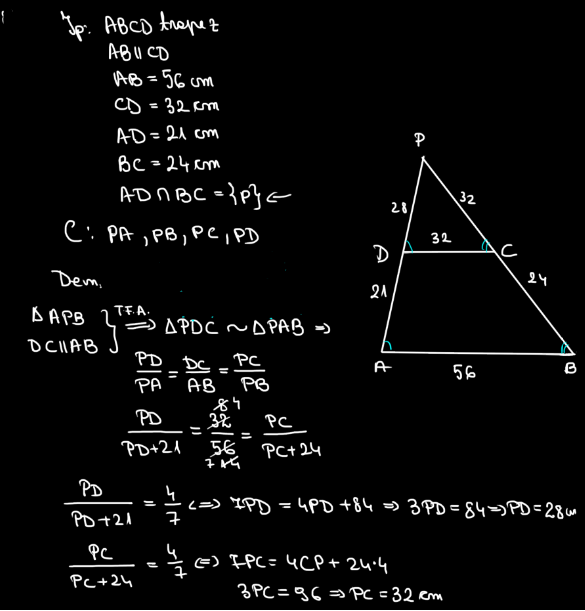 Ip: ABCD trapez
AB || CD
AB = 56 cm
CD = 32 cm
AD = 21 cm
BC = 24 cm
AD ∩ BC = {P} ←
C: PA, PB, PC, PD
Dem.
ΔAPB
DC || AB } T.F.A. ⟹ ΔPDC ~ ΔPAB ⇒
PD/PA = DC/AB = PC/PB
8 4
PD/(PD+21) = 32/56 = PC/(PC+24)
7 14
PD/(PD+21) = 4/7 ⇔ 7PD = 4PD + 84 ⇒ 3PD = 84 ⇒ PD = 28 cm
PC/(PC+24) = 4/7 ⇔ 7PC = 4CP + 24·4
3PC = 96 ⇒ PC = 32 cm
P
28
32
D
32
C
21
24
A
56
B